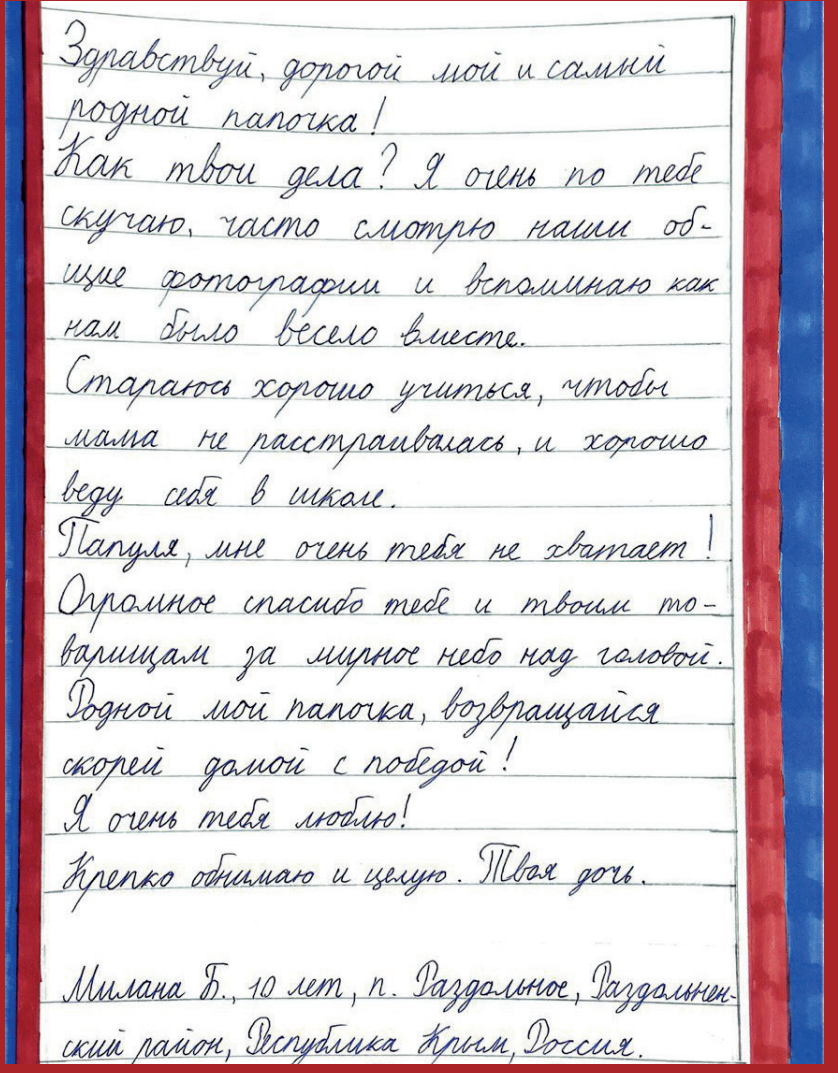 Здравствуй, дорогой мой и самый
родной папочка!
Как твои дела? Я очень по тебе
скучаю, часто смотрю наши об-
щие фотографии и вспоминаю как
нам было весело вместе.
Стараюсь хорошо учиться, чтобы
мама не расстраивалась, и хорошо
веду себя в школе.
Папуля, мне очень тебя не хватает!
Огромное спасибо тебе и твоим то-
варищам за мирное небо над головой.
Родной мой папочка, возвращайся
скорей домой с победой!
Я очень тебя люблю!
Крепко обнимаю и целую. Твоя дочь.
Милана Б., 10 лет, п. Раздольное, Раздольнен-
ский район, Республика Крым, Россия.